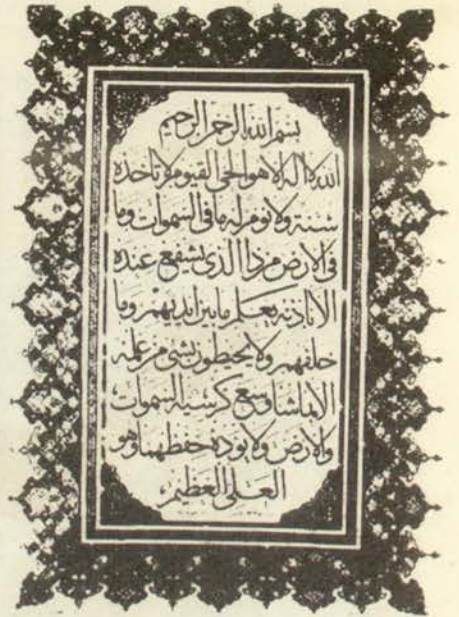 بسم الله الرحمن الرحيم
الله لا اله الا هو الحي القيوم لا تاخذه
سنة ولا نوم له ما في السموات وما
في الارض من ذا الذي يشفع عنده
الا باذنه يعلم ما بين ايديهم وما
خلفهم ولا يحيطون بشي من علمه
الا بما شا وسع كرسيه السموات
والارض ولا يوده حفظهما وهو
العلي العظيم